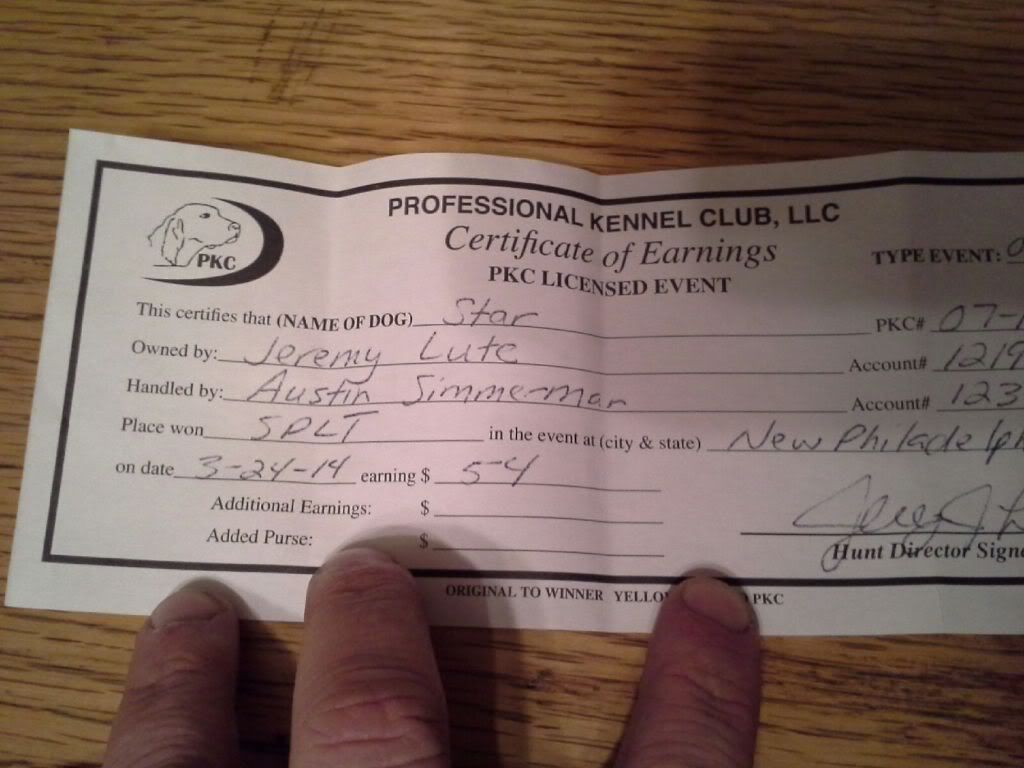 PROFESSIONAL KENNEL CLUB, LLC
Certificate of Earnings
PKC LICENSED EVENT
PKC
TYPE EVENT:
This certifies that (NAME OF DOG) Star PKC# 07-1
Owned by: Jeremy Lute Account# 1219
Handled by: Austin Simmerman Account# 123
Place won SPLT in the event at (city & state) New Philadelph
on date 3-24-14 earning $ 54
Additional Earnings: $
Added Purse: $
Hunt Director Signa
ORIGINAL TO WINNER YELLO PKC